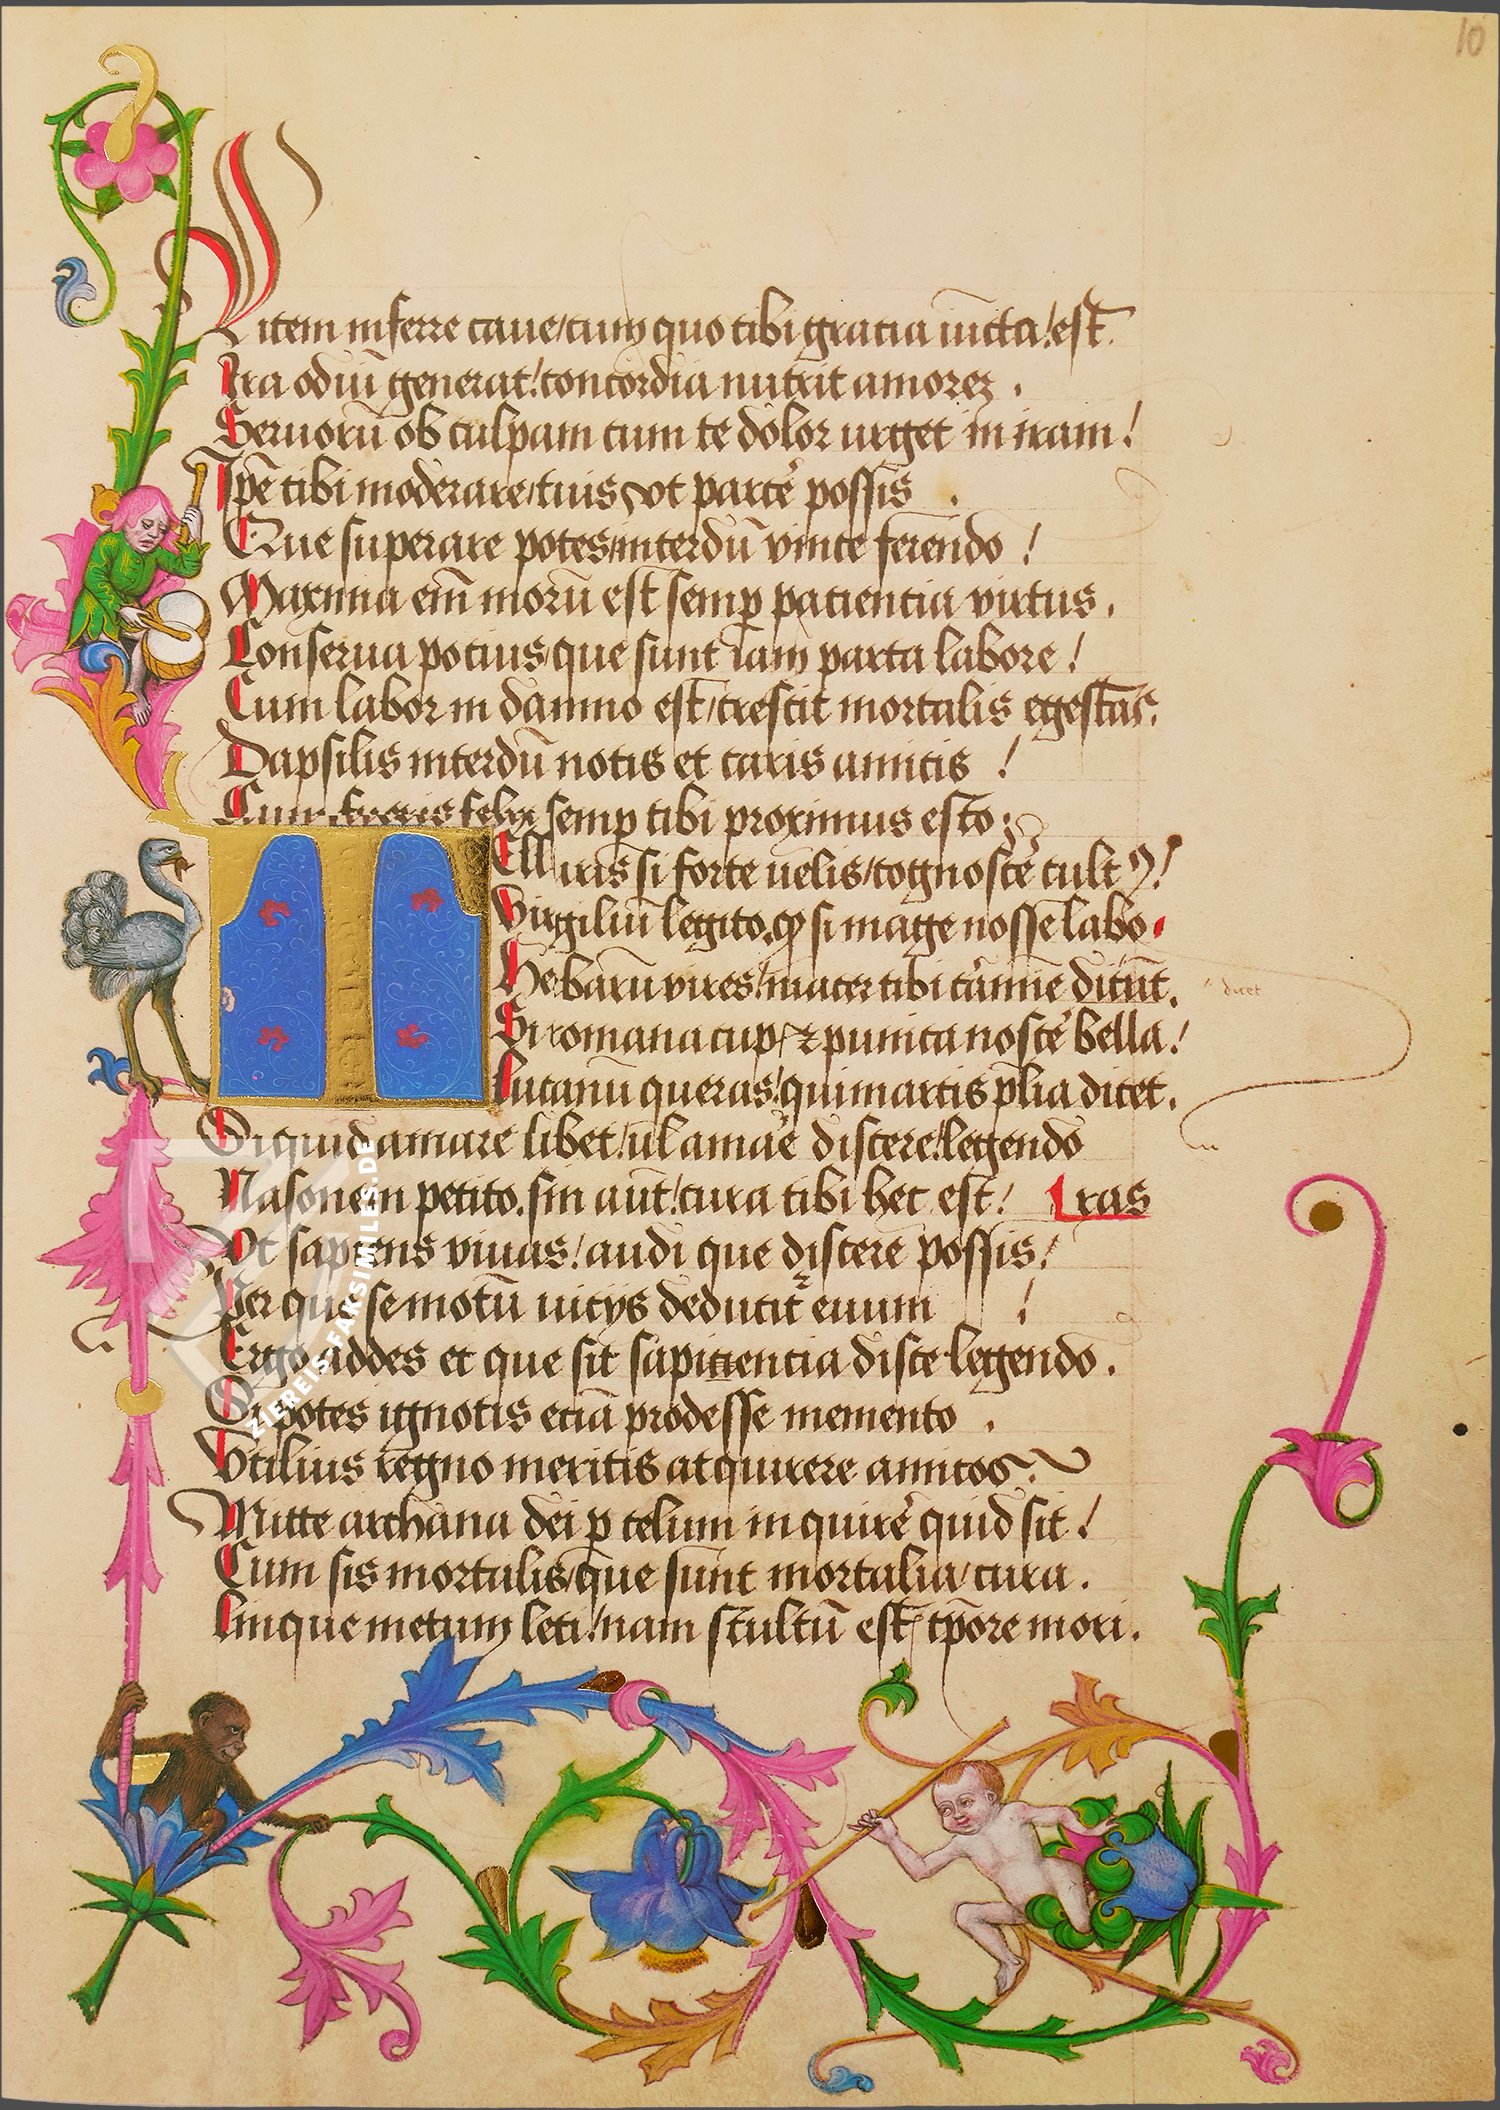 10
Litem inferre caue/cum quo tibi gratia iūcta!est.
Ira odiū generat!concordia nutrit amorez .
Seruorū ob culpam cum te dolor urget in iram!
Ipē tibi moderare/tuis vt parcē possis .
Que superare potes/interdū vince ferendo !
Maxima em̄ morū est semp patientia virtus .
Conserua potius/que sunt iam parta labore !
Cum labor in damno est/crescit mortalis egestas.
Dapsilis interdū notis et caris amicis !
Cum fueris felix semp tibi proximus esto;
Elluris si forte uelis/cognoscē cult9!
Virgiliū legito.qp si mage nosse labo.
Herbarū vires/macer tibi cārmīe dicūt.
dicet
Si romana cup/ et punica noscē bella!
Lucanū queras!qui martis plia dicet.
Si quid amare libet/ul amāe discere!legendo
Nasonem petito.sin aūt!cura tibi hec est! Lras
Vt sapiens viuas!audi que discere possis!
Per que semotū uicijs deducit euum !
Ergo addes et que sit sapiciencia disce legendo.
Si potes ignotis eciā prodesse memento .
Vtilius regno meritis acquirere amicos.
Mitte archana dei p celum inquirē quid sit!
Cum sis mortalis/que sunt mortalia/cura.
Linque metum leti!nam stultū est tpōre mori.
ZIEREIS-FAKSIMILES.DE